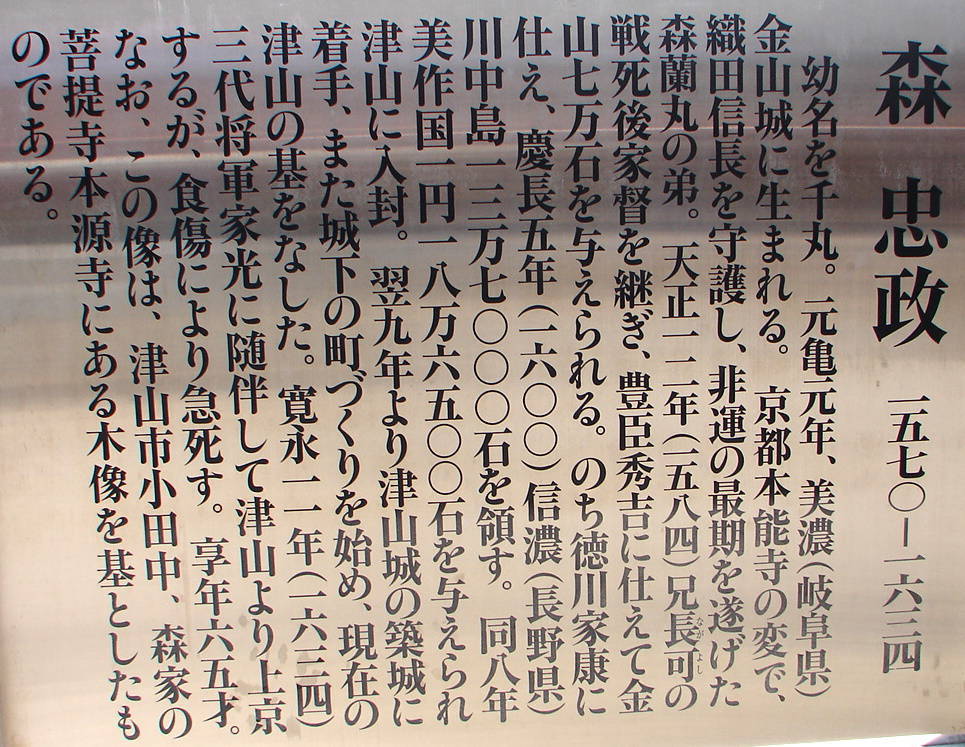 森 忠政 一五七〇ー一六三四
幼名を千丸。元亀元年、美濃(岐阜県)
金山城に生まれる。京都本能寺の変で、
織田信長を守護し、非運の最期を遂げた
森蘭丸の弟。天正一二年(一五八四)兄長可の
ながよし
戦死後家督を継ぎ、豊臣秀吉に仕えて金
山七万石を与えられる。のち徳川家康に
仕え、慶長五年(一六〇〇)信濃(長野県)
川中島一三万七〇〇〇石を領す。同八年
美作国一円一八万六五〇〇石を与えられ
津山に入封。翌九年より津山城の築城に
着手、また城下の町づくりを始め、現在の
津山の基をなした。寛永一一年(一六三四)
三代将軍家光に随伴して津山より上京
するが、食傷により急死す。享年六五才。
なお、この像は、津山市小田中、森家の
菩提寺本源寺にある木像を基としたも
のである。